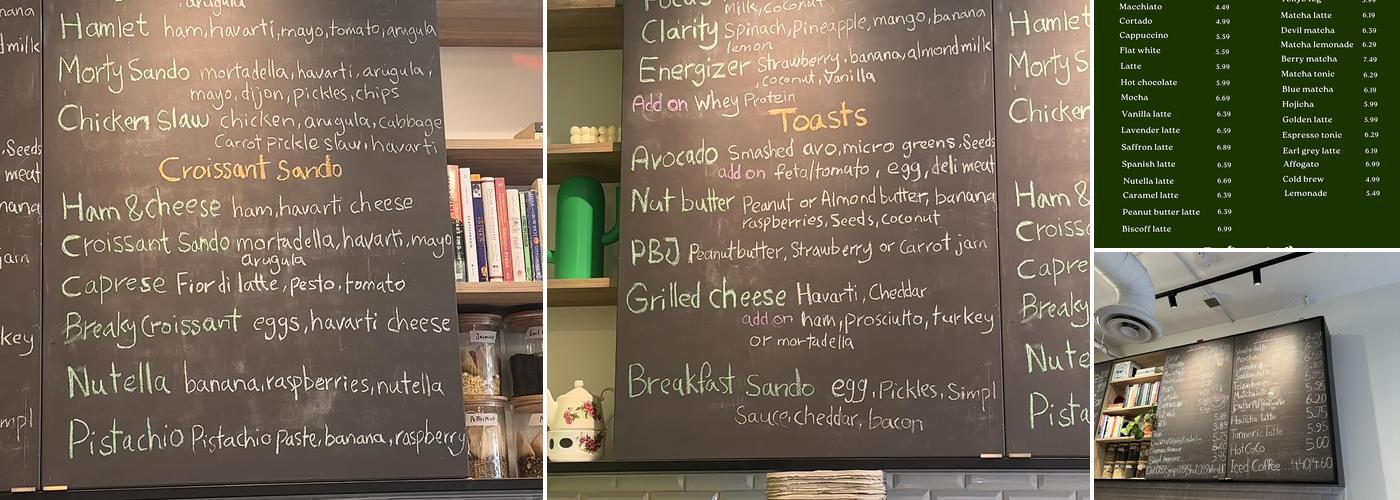 arugula
Hamlet ham,havarti,mayo,tomato,arugula
Morty Sando mortadella,havarti,arugula,
mayo,dijon,pickles,chips
Chicken Slaw chicken,arugula,cabbage
Carrot pickle slaw,havarti
Croissant Sando
Ham & cheese ham,havarti cheese
Croissant Sando mortadella,havarti,mayo
arugula
Caprese Fior di latte,pesto,tomato
Breaky Croissant eggs,havarti cheese
Nutella banana,raspberries,nutella
Pistachio Pistachio paste,banana,raspberry
Focus Milk,Coconut
Clarify Spinach,Pineapple,mango,banana
lemon
Energizer Strawberry,banana,almond milk
,coconut,Vanilla
Add on Whey Protein
Toasts
Avocado Smashed avo,micro greens,Seeds
add on feta/tomato, egg,deli meat
Nut butter Peanut or Almond butter, banana
raspberries,Seeds,coconut
PBJ Peanutbutter,Strawberry or Carrot jam
Grilled cheese Havarti, Cheddar
add on ham,prosciutto,turkey
or mortadella
Breakfast Sando egg,Pickles,Simpl
Sauce,cheddar,bacon
Hamlet
Morty S
Chicken
Ham &
Croiss
Capre
Breaky
Nute
Pista
Macchiato 4.49
Cortado 4.99
Cappuccino 5.59
Flat white 5.59
Latte 5.99
Hot chocolate 5.99
Mocha 6.69
Vanilla latte 6.39
Lavender latte 6.59
Saffron latte 6.89
Spanish latte 6.59
Nutella latte 6.69
Caramel latte 6.39
Peanut butter latte 6.39
Biscoff latte 6.99
Matcha latte 6.19
Devil matcha 6.59
Matcha lemonade 6.29
Berry matcha 7.49
Matcha tonic 6.29
Blue matcha 6.19
Hojicha 5.99
Golden latte 5.99
Espresso tonic 6.29
Earl grey latte 6.19
Affogato 6.99
Cold brew 4.99
Lemonade 5.49
Mocha
Hojicha latte 5.75
Turmeric latte 5.95
Hot CoCo 5.00
Iced Coffee 4.40 4.60